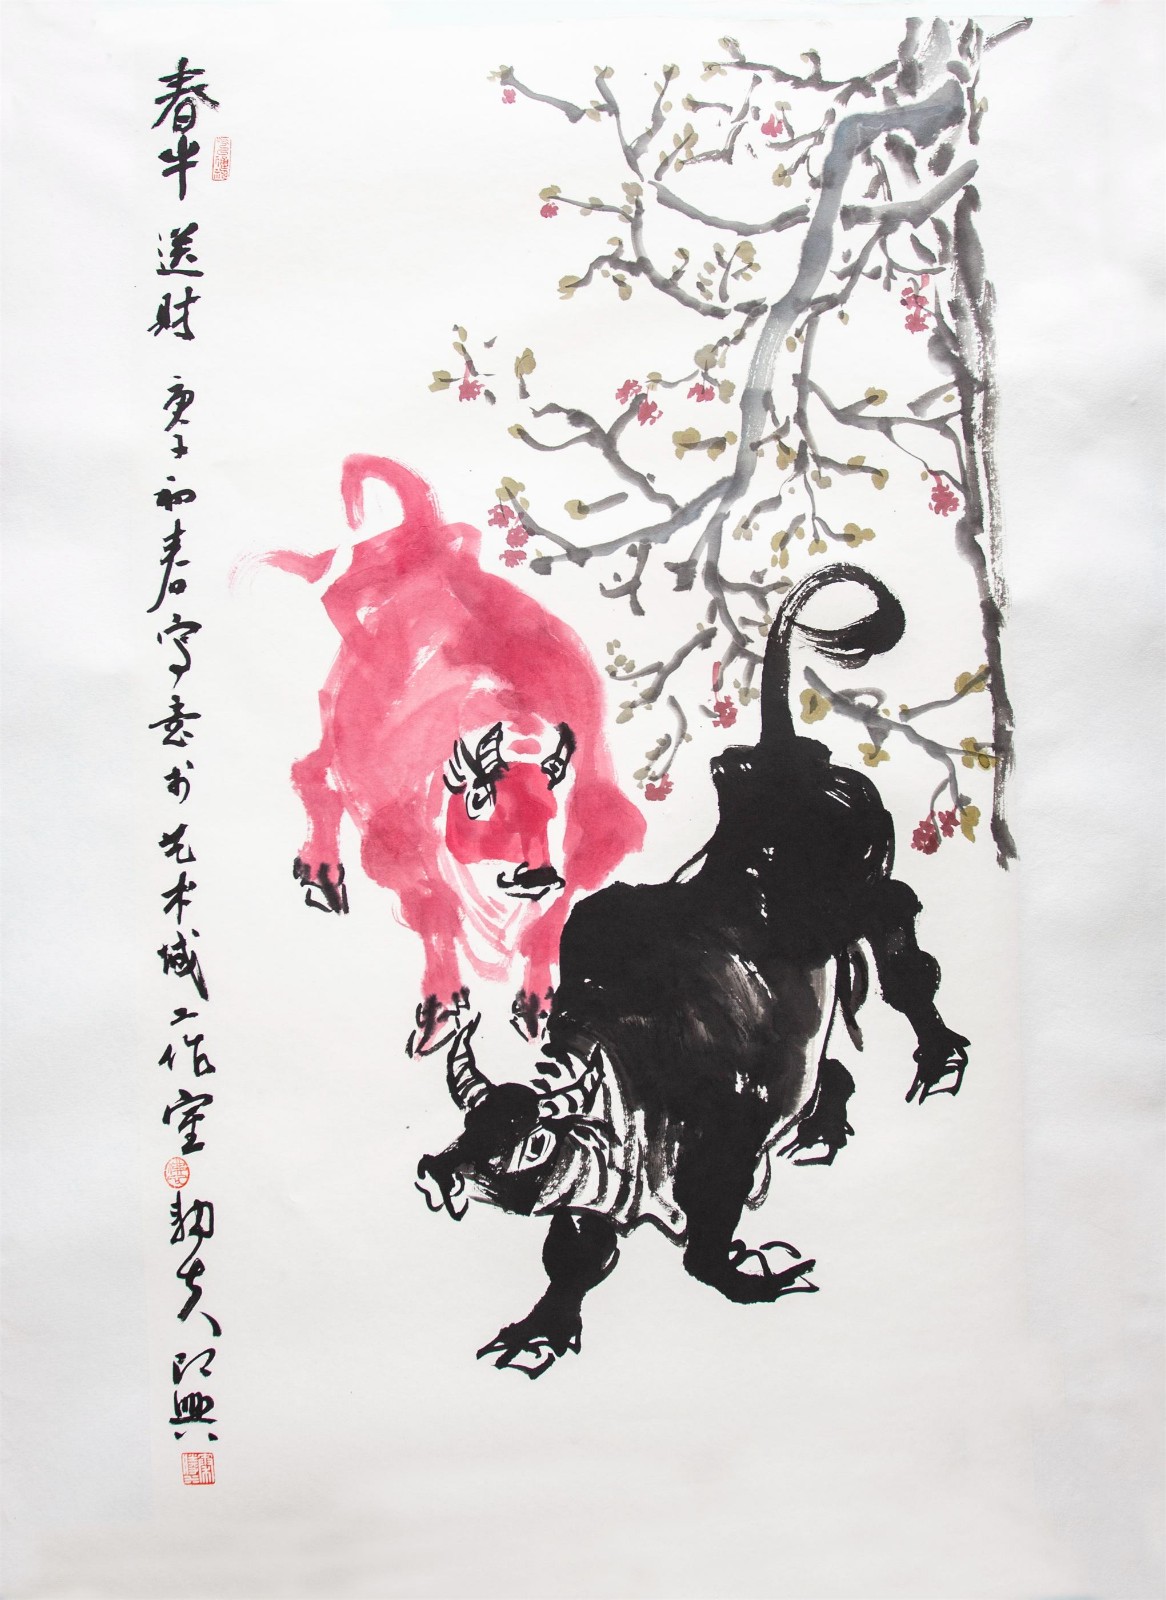 春牛送财 庚子初春写意于艺术城工作室 夫即興